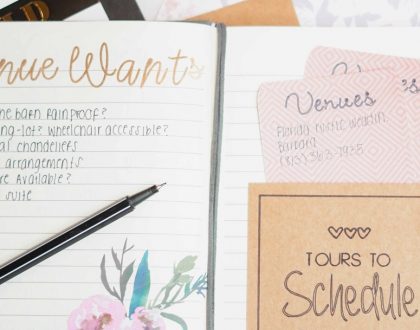 nue Wants
he barn rainproof?
ng-lot? Wheelchair accessible?
al chandeliers
arrangements
re Available?
suite
's
Venues
Florida Rustic Wedding
Barbara
TOURS TO
Schedule